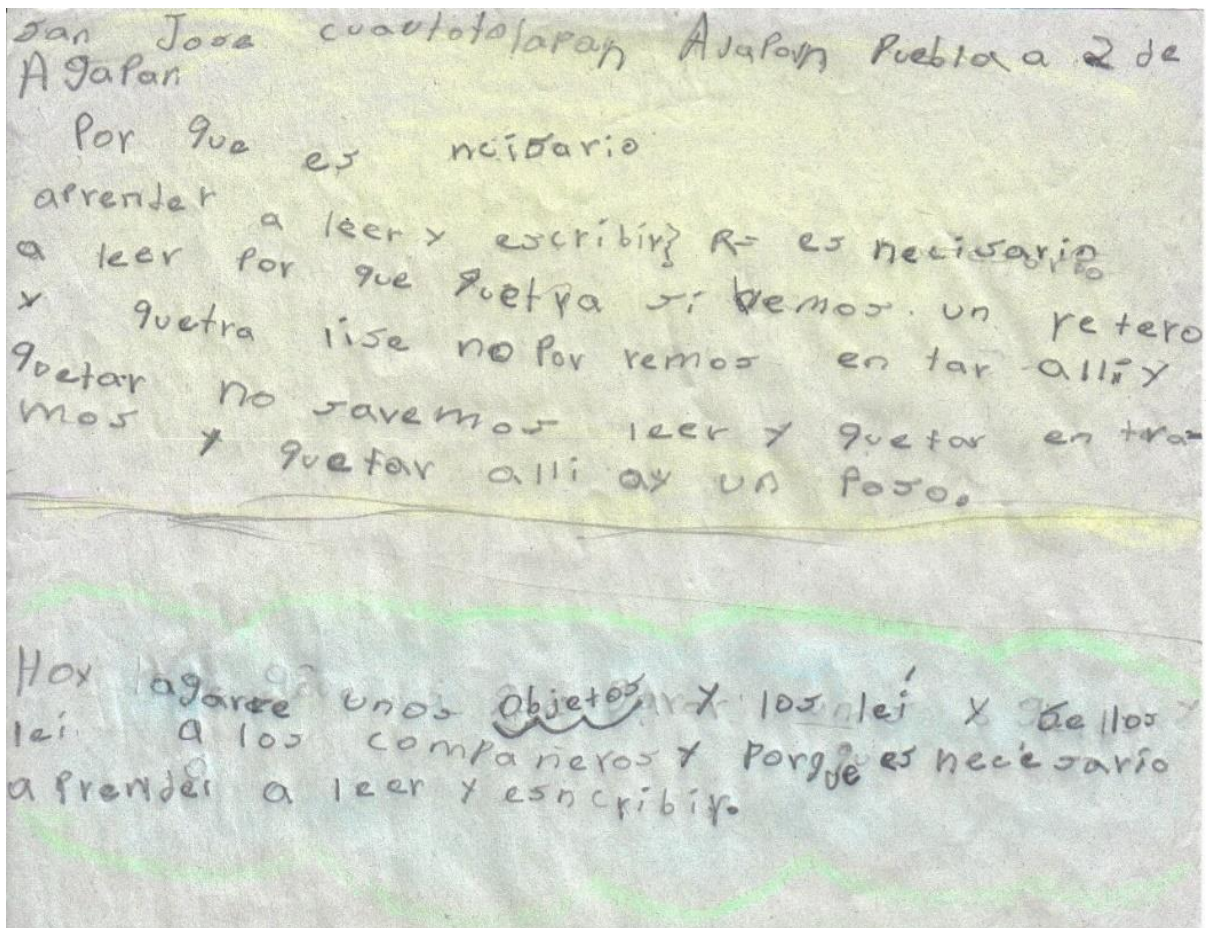 san Jose cuautotolapan Ajalpan Puebla a 2 de
Agalpan
Por que es ncisario
aprender a leer y escribir} R= es necisario
a leer por que quetra si bemos un retero
y quetra iise no Por remos en tar alli y
quetar no savemos leer y quetar en tra-
mos y quetar alli ay un Poso.
Hoy agarre unos objetos y los leí y se llos
leí a los compañeros y porque es necesario
a Prender a leer y esncribir.